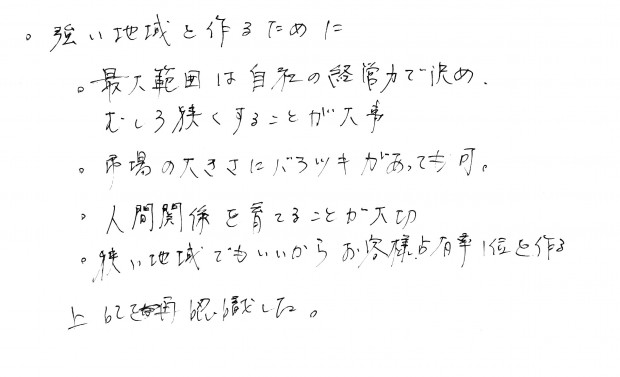 。強い地域を作るために
。最大範囲は自社の経営力で決め、
むしろ狭くすることが大事
。市場の大きさにバラツキがあっても可。
。人間関係を育てることが大切
。狭い地域でもいいからお客様占有率1位を作る
上 再認識した。